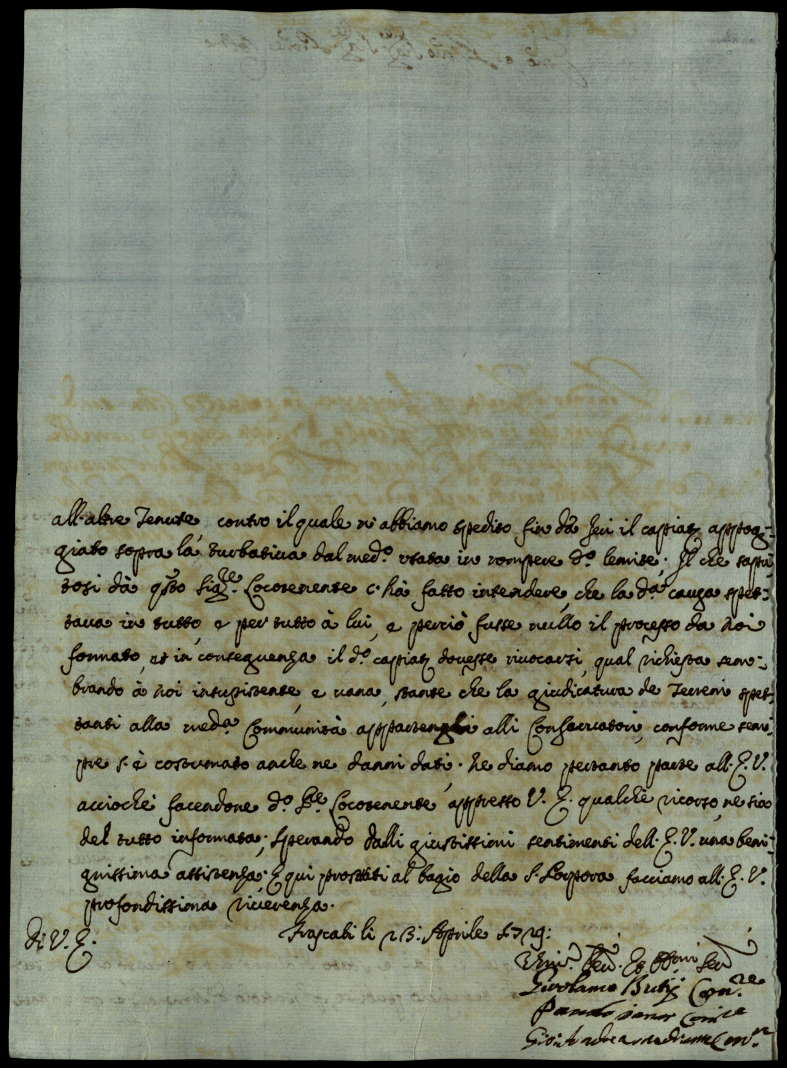 all'altre Tenute, contro il quale n'abbiamo spedito fin da Jeri il capiat appog-
giato sopra la turbativa dal med.º usata in rompere d.º limite. Il che sapu-
tosi dà q.sto Sig.re Locotenente c'hà fatto intendere, che la d.ª causa spet-
tava in tutto, e per tutto à lui, e perciò fusse nullo il processo da noi
formato, et in conseguenza il d.º capiat dovesse rivocarsi, qual richiesta sem-
brando à noi insussistente, e vana, stante che la giudicatura de Terreni spet-
tanti alla med.ª Communità appartenghi alli Conservatori, conforme sem-
pre s'è costumato anche ne danni dati. Ne diamo pertanto parte all'E. V.
accioche facendone d.º Sig.re Locotenente appresso V. E. qualche ricorso, ne sia
del tutto informata; Sperando dalli giustissimi sentimenti dell'E. V. una beni-
gnissima assistenza. E qui prostrati al bagio della S. Porpora facciamo all'E. V.
profondissima riverenza.
di V. E.
Frascati li 23. Aprile 1729.
Girolamo Con.re